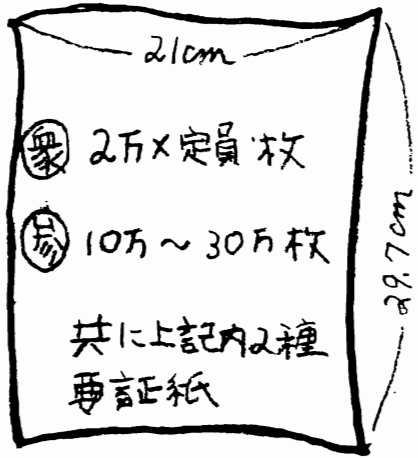 21cm
衆 2万×定員枚
参 10万~30万枚
共に上記内2種
要証紙
29.7cm